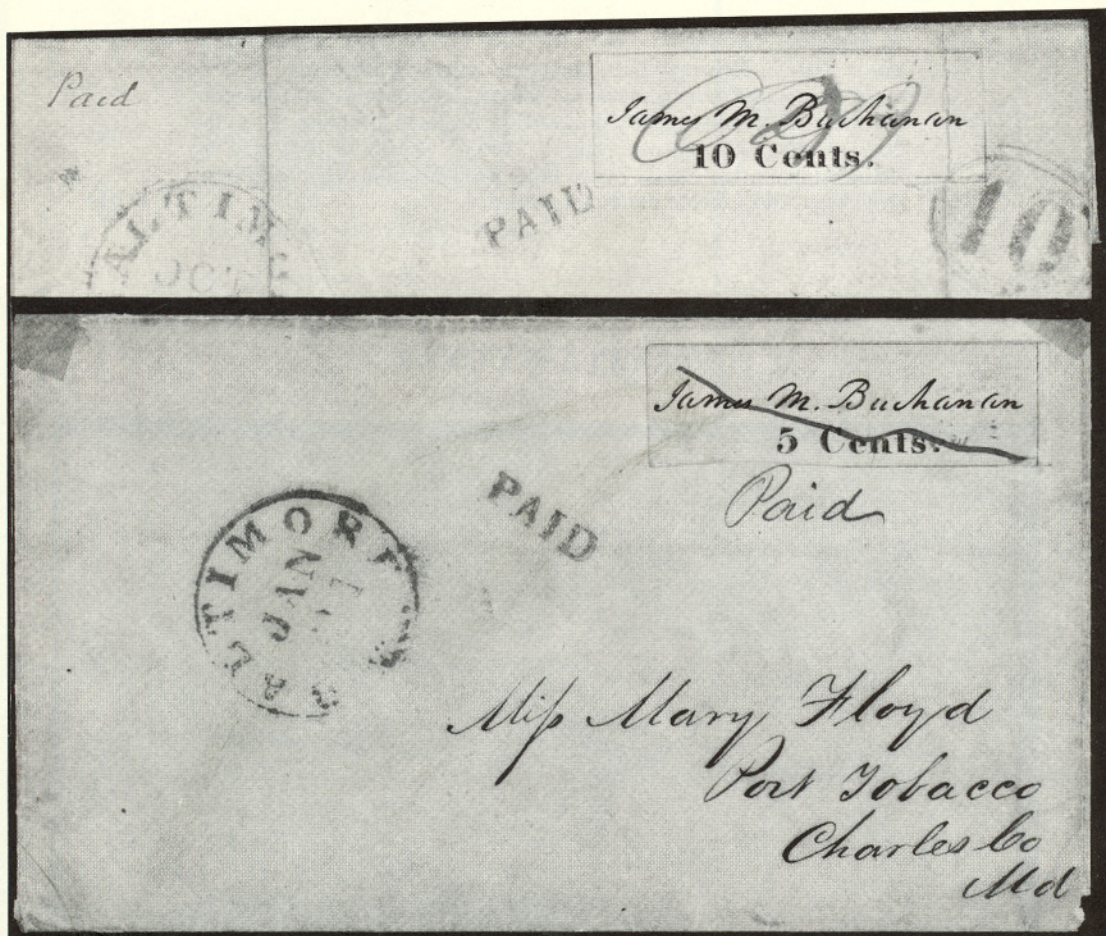 Paid
James M. Buchanan
10 Cents.
PAID
ALTIM
OCT
10
James M. Buchanan
5 Cents.
Paid
PAID
BALTIMORE
JAN
Miss Mary Floyd
Port Tobacco
Charles Co
Md